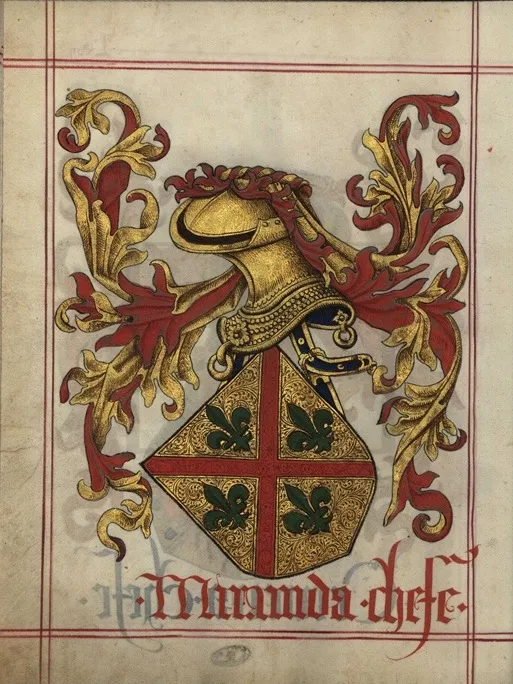 ·Miranda·chefe·